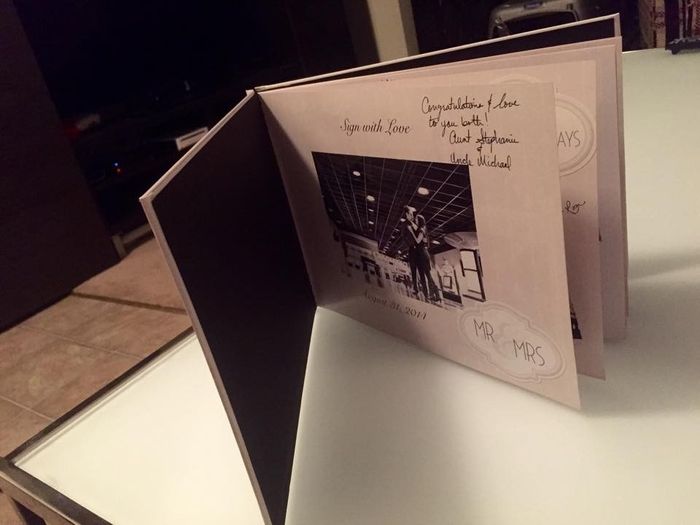 Sign with Love
Congratulations & love
to you both!
Aunt Stephanie
&
Uncle Michael
August 31, 2014
MR & MRS
AYS